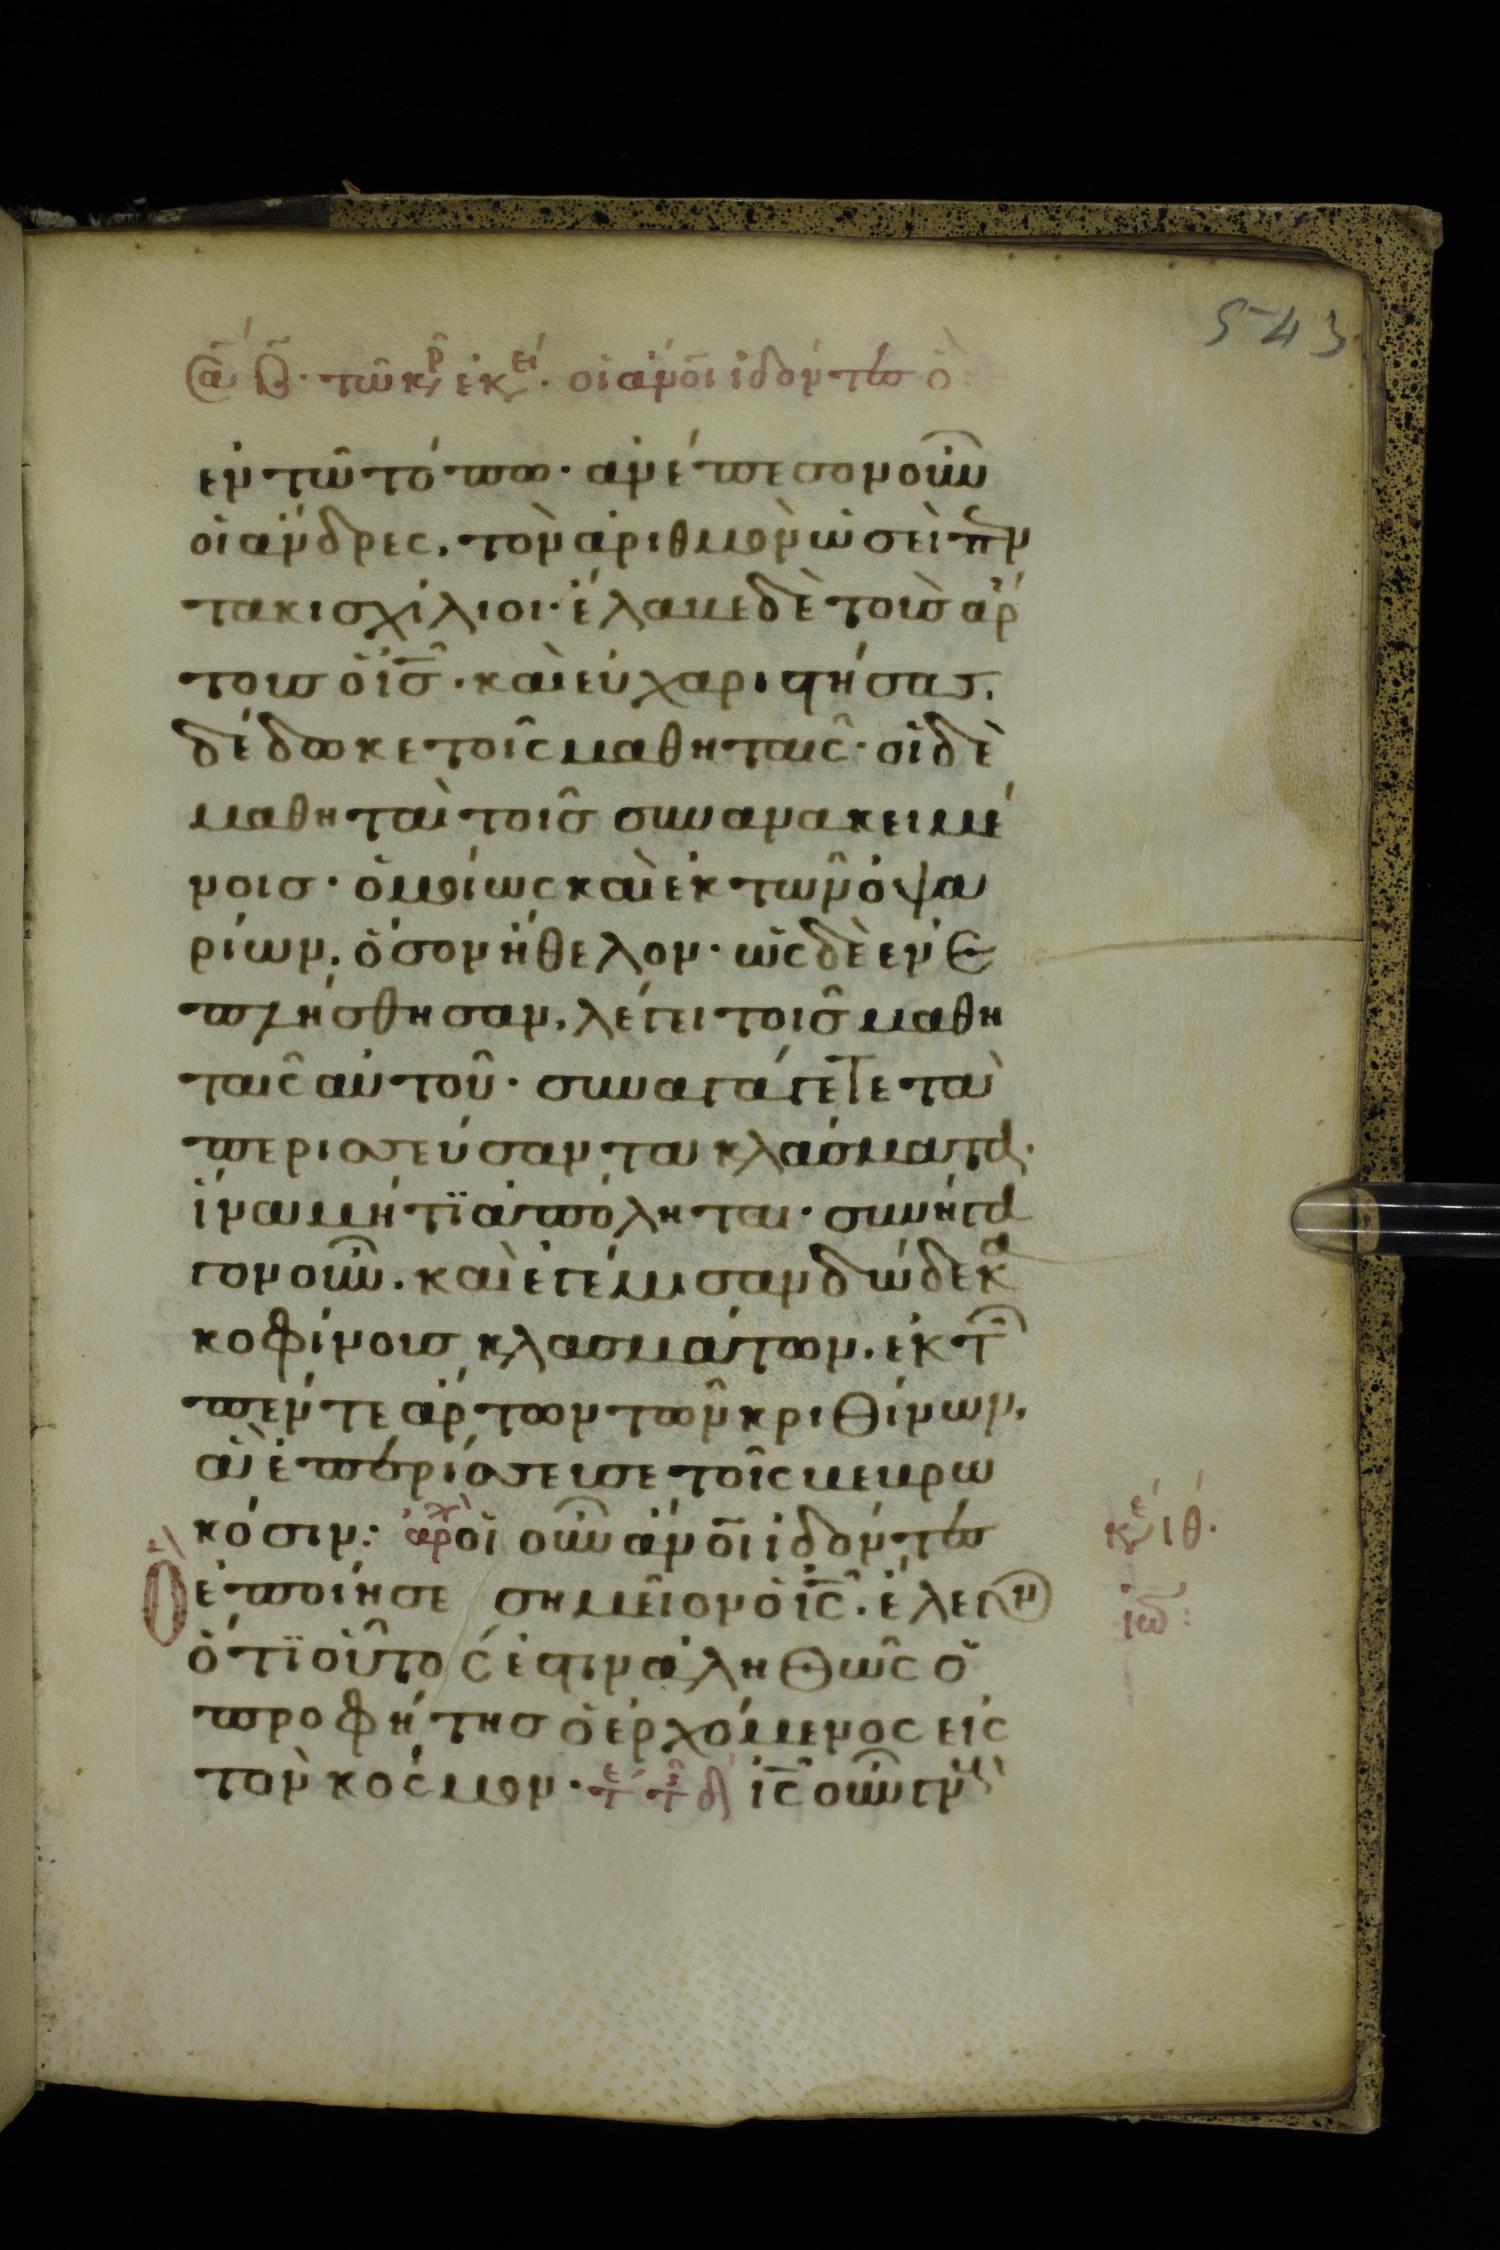 543
τῶ κρ ἐκει. οἱ ἀνοῖ ἰδόντες ὃ
ἐν τῶ τόπω. ἀνέπεσον οὖν
οἱ ἄνδρες, τὸν ἀριθμὸν ὡσεὶ πεν
τακισχίλιοι. ἔλαβε δὲ τοὺς ἄρ
τους ὁ ις. καὶ εὐχαριστήσας,
δέδωκε τοῖς μαθηταῖς. οἱ δὲ
μαθηταὶ τοῖς συνανακειμέ
νοις. ὁμοίως καὶ ἐκ τῶν ὀψα
ρίων, ὅσον ἤθελον. ὡς δὲ ἐνε
πλήσθησαν, λέγει τοῖς μαθη
ταῖς αὐτοῦ. συναγάγετε τὰ
περισσεύσαντα κλάσματα.
ἵνα μήτϊ ἀπόληται. συνήγα
γον οὖν. καὶ ἐγέμισαν δώδεκα
κοφίνους κλασμάτων. ἐκ τῶν
πέντε ἄρτων τῶν κριθίνων,
ἃ ἐπερίσσευσε τοῖς βεβρω
κόσιν: ἀρχ οἱ οὖν ἀνοῖ ἰδόντες κε ιθ.
Ὃ ἐποίησε σημεῖον ὁ ις. ἔλεγον ιω:
ὅτϊ οὗτός ἐστιν ἀληθῶς ὁ
προφήτης ὁ ἐρχόμενος εἰς
τὸν κόσμον. ις οὖν γν